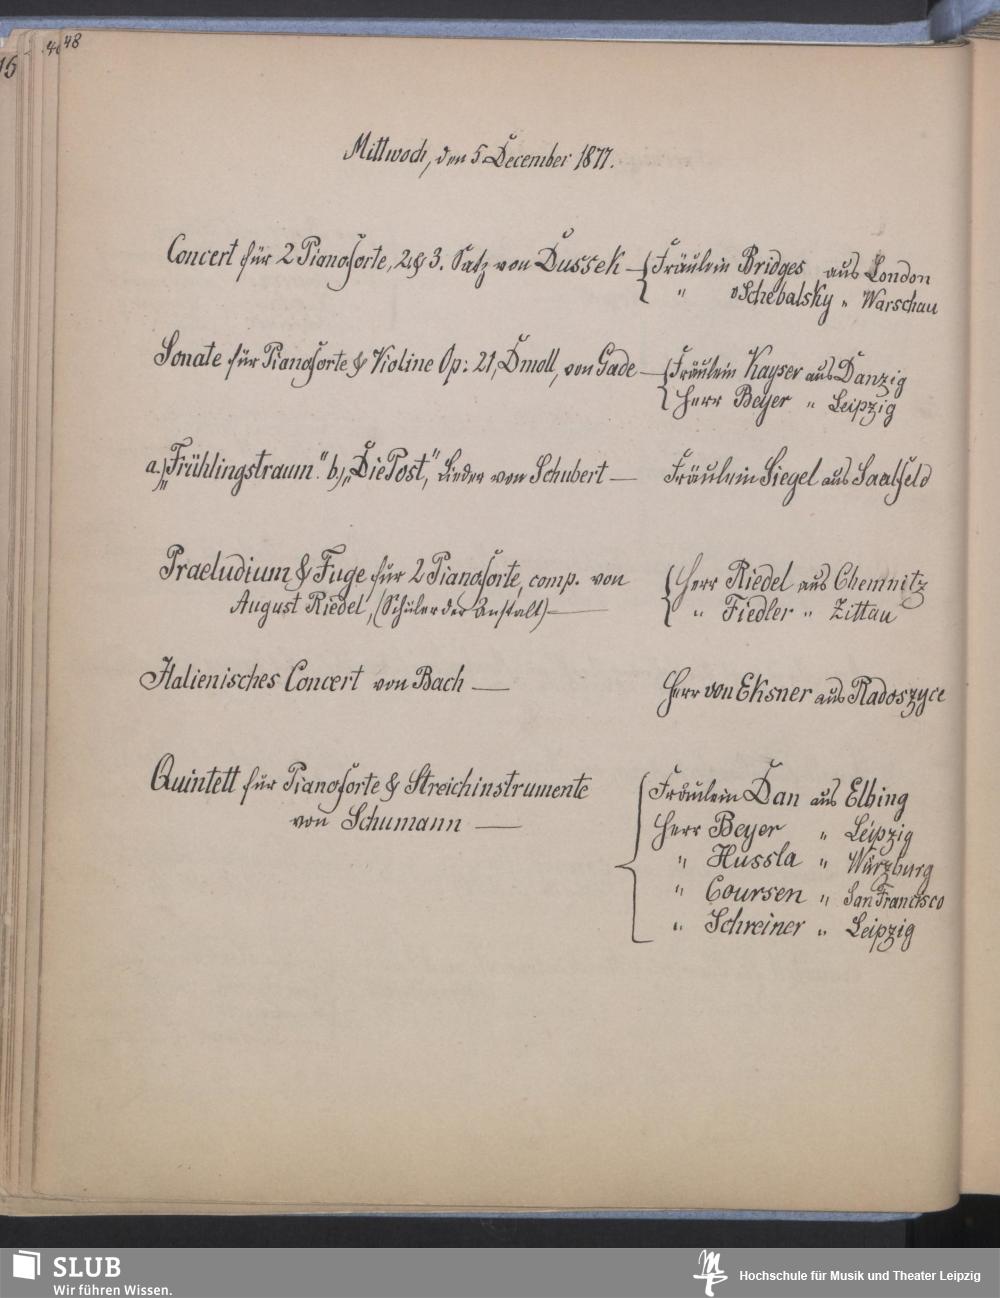 15
48
Mittwoch, den 5 December 1877.
Concert für 2 Pianoforte, 2. & 3. Satz von Dussek — Fräulein Bridges aus London
" v Schebalsky " Warschau
Sonate für Pianoforte & Violine Op: 21, Dmoll, von Gade — Fräulein Kayser aus Danzig
Herr Beyer " Leipzig
a.) „Frühlingstraum". b.) „Die Post", Lieder von Schubert — Fräulein Siegel aus Saalfeld
Praeludium & Fuge für 2 Pianoforte, comp. von Herr Riedel aus Chemnitz
August Riedel, (Schüler der Anstalt) — " Fiedler " Zittau
Italienisches Concert von Bach — Herr von Eksner aus Radoszyce
Quintett für Pianoforte & Streichinstrumente Fräulein Dan aus Elbing
von Schumann — Herr Beyer " Leipzig
" Hussla " Würzburg
" Coursen " San Francisco
" Schreiner " Leipzig
SLUB
Wir führen Wissen.
Hochschule für Musik und Theater Leipzig